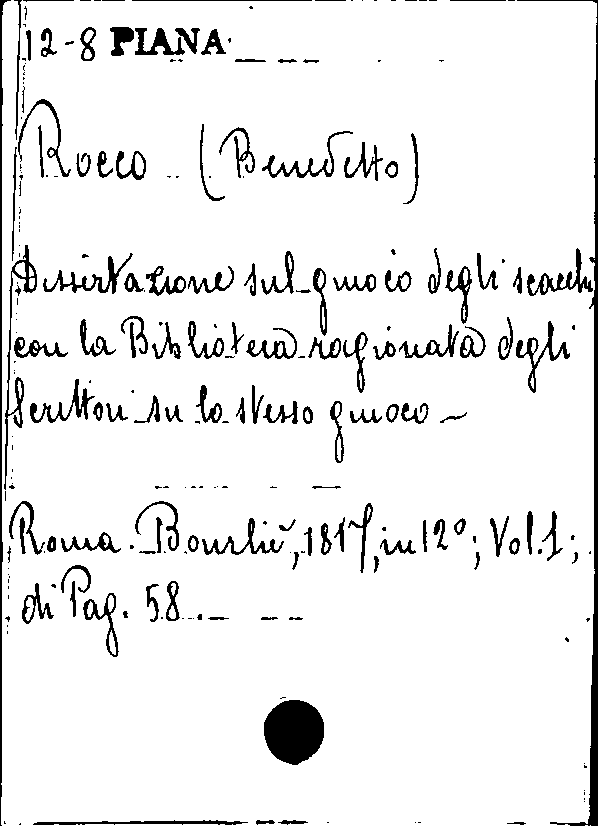 12-8 PIANA
Rocco (Benedetto)
Dissertazione sul giuoco degli scacchi,
con la Biblioteca ragionata degli
Scrittori su lo stesso giuoco –
Roma. Bourliè, 1817, in 12º; Vol. 1;
di Pag. 58.